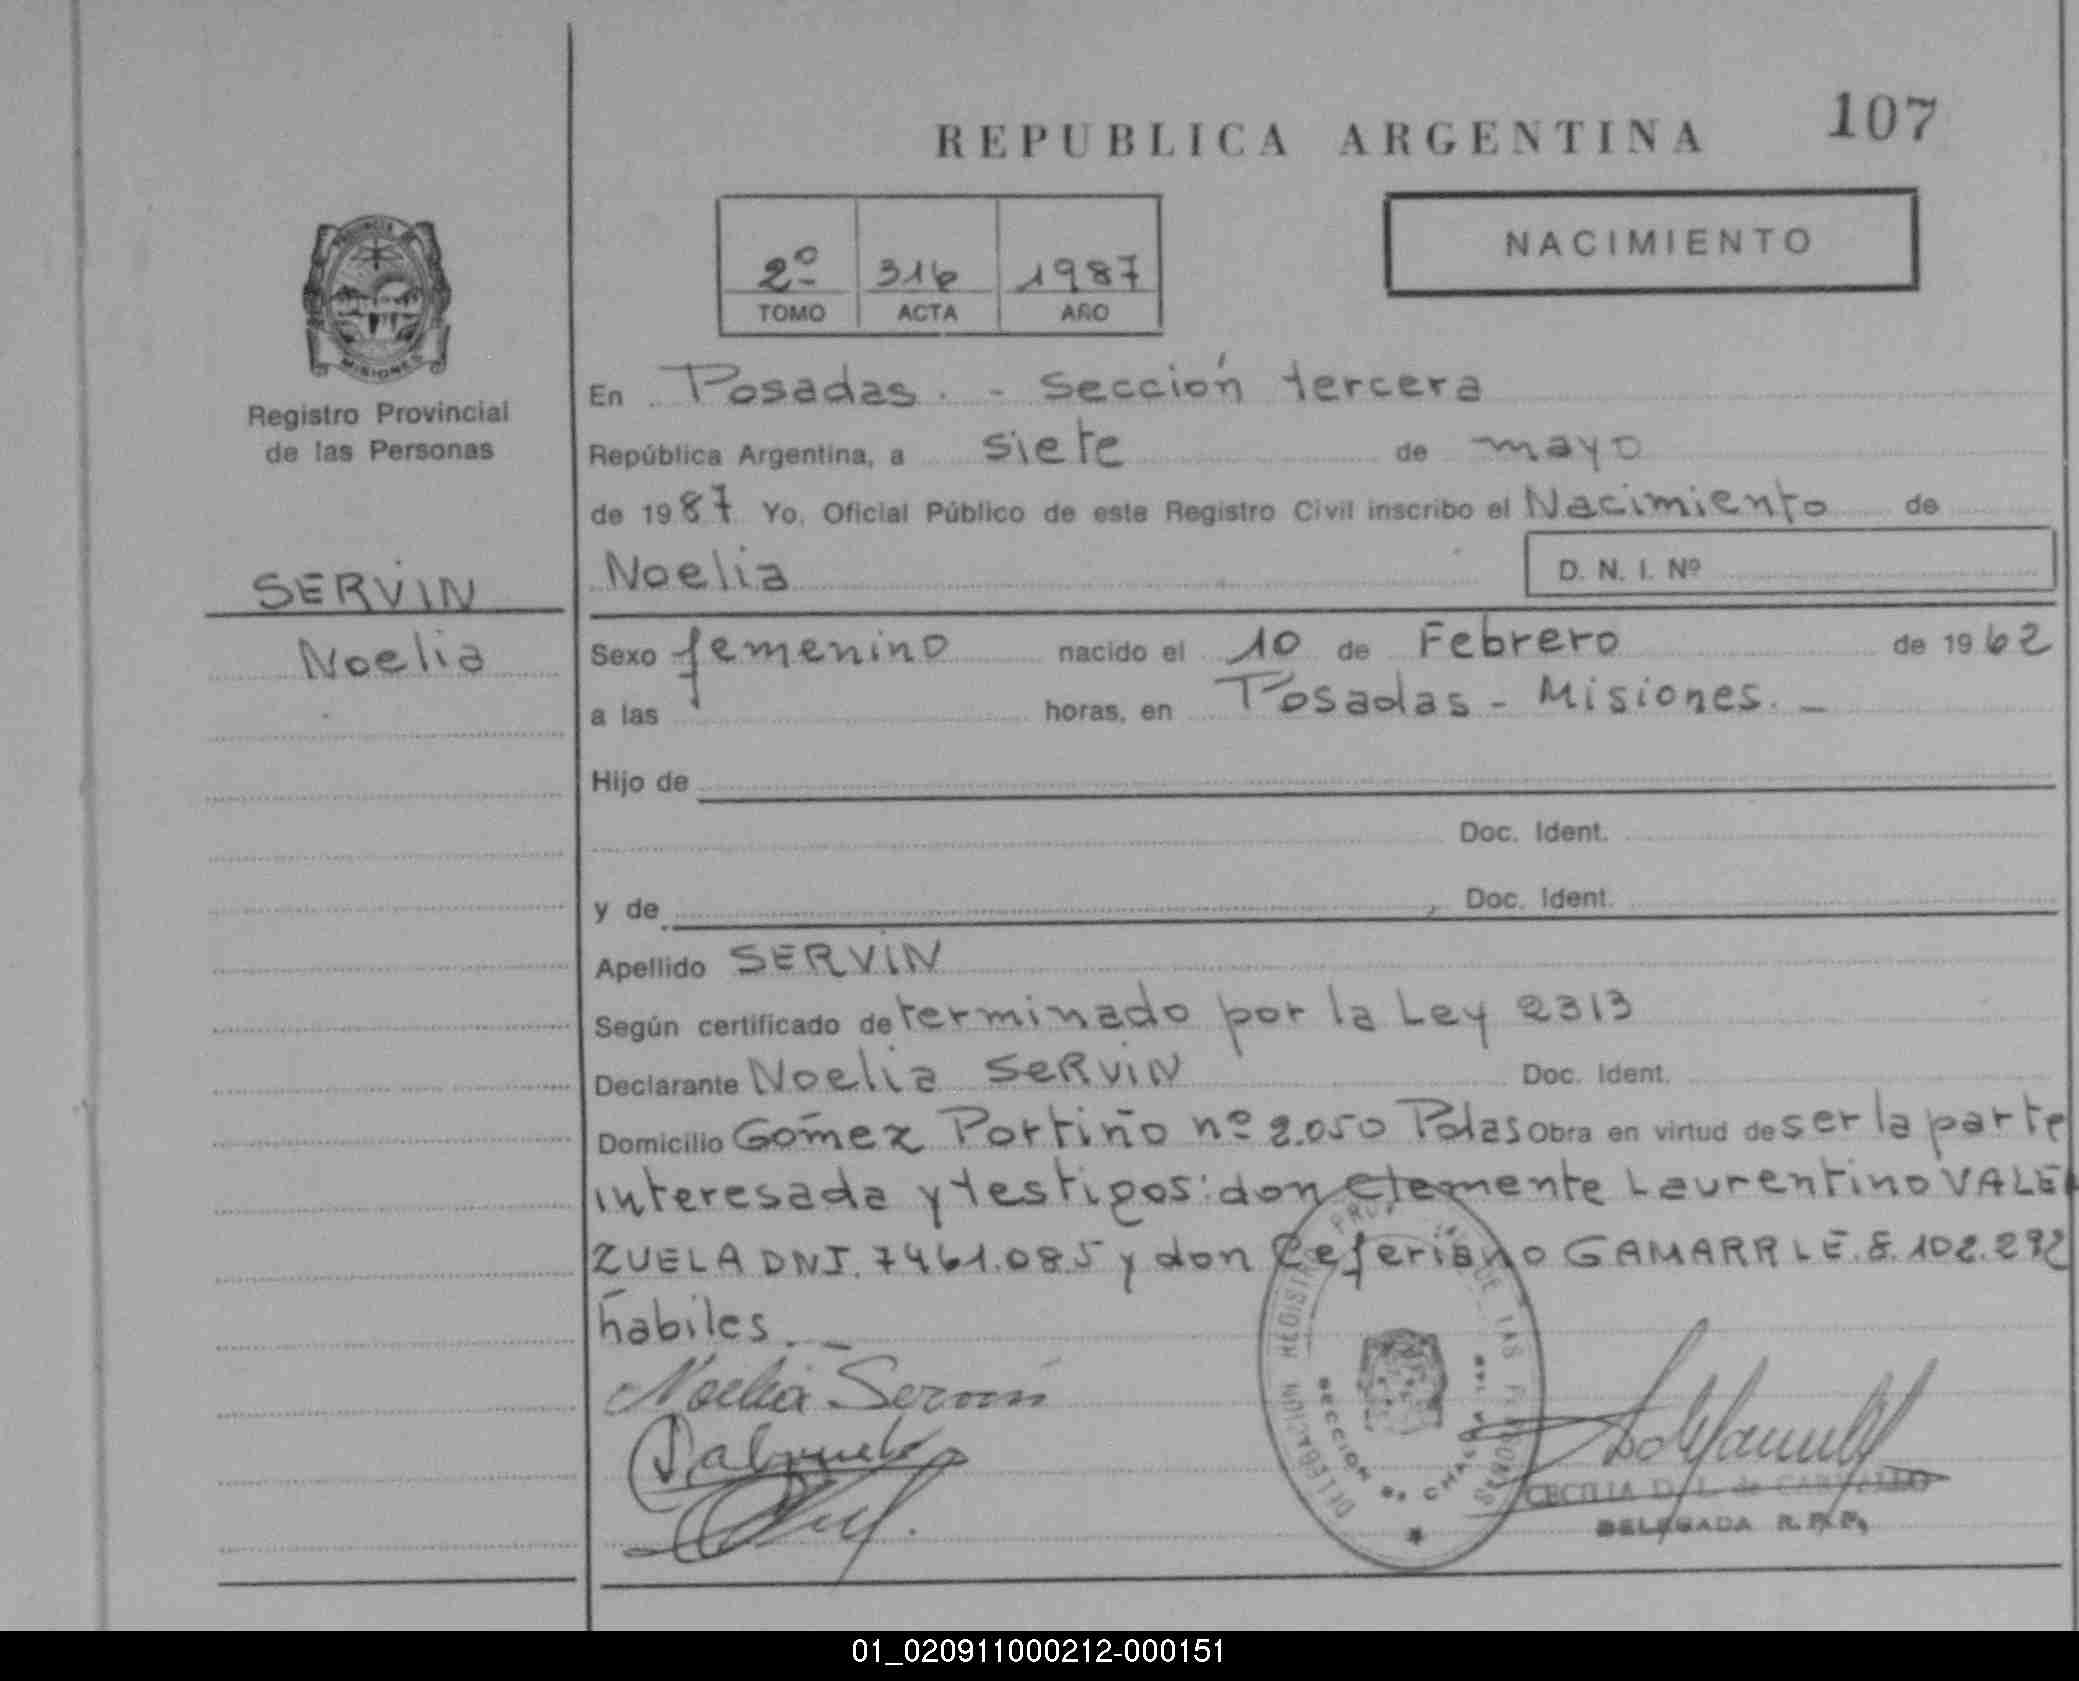 REPUBLICA ARGENTINA 107
NACIMIENTO
2º 316 1987
TOMO ACTA AÑO
PROVINCIA
MISIONES
Registro Provincial
de las Personas
SERVIN
Noelia
En Posadas. - Sección tercera
República Argentina, a siete de mayo
de 1987 Yo, Oficial Público de este Registro Civil inscribo el Nacimiento de
Noelia D. N. I. Nº
Sexo femenino nacido el 10 de Febrero de 1962
a las horas, en Posadas - Misiones. -
Hijo de
Doc. Ident.
y de , Doc. Ident.
Apellido SERVIN
Según certificado determinado por la Ley 2313
Declarante Noelia SERVIN Doc. Ident.
Domicilio Gómez Portiño nº 2.050 Pdas Obra en virtud de ser la parte
interesada y testigos: don Clemente Laurentino VALEN
ZUELA DNI. 7461.085 y don Ceferiano GAMARR LE. 8.102.292
hábiles. -
Noelia Servin
DELEGACION REGISTRO PROV. DE LAS PERSONAS
SECCION DE CHACRAS
CECILIA D. L. de CARVALLO
DELEGADA R.P.P.
01_020911000212-000151